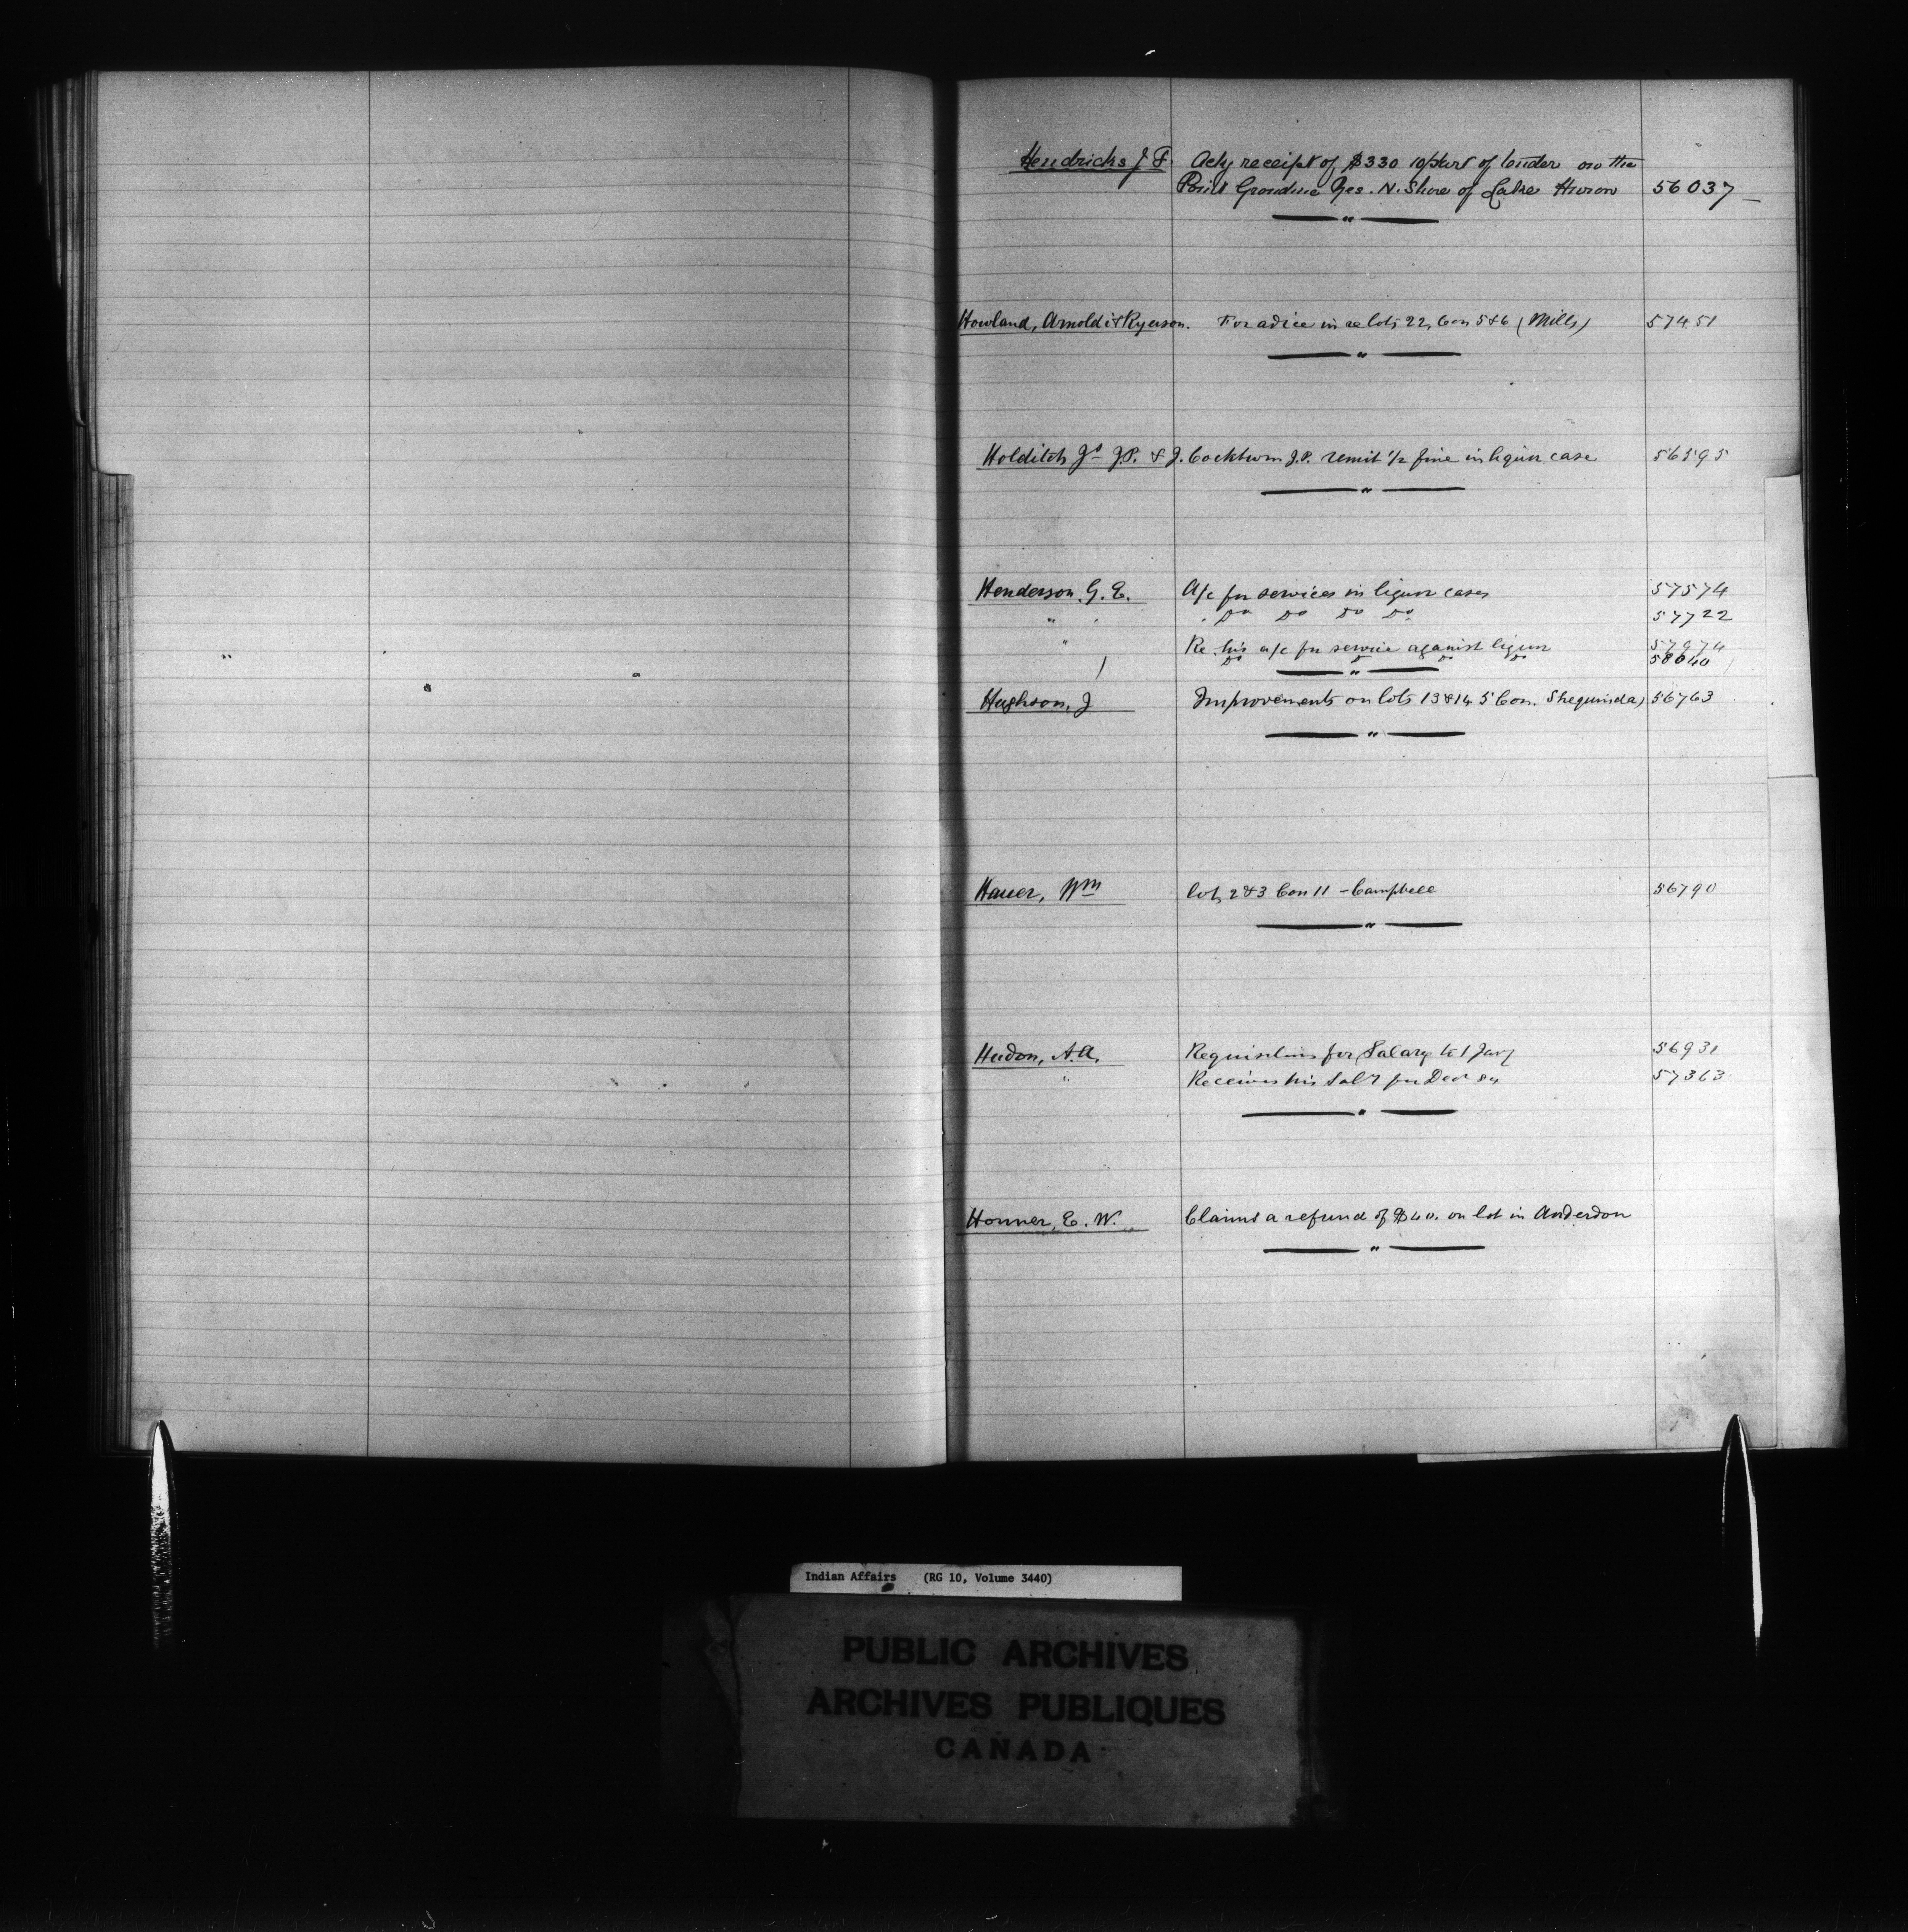 Hendricks J. F. Ackg receipt of $330 10/part of tender on the
Point Grondine Res. N. Shore of Lake Huron 56037
Howland, Arnoldi & Ryerson. For advice in re lots 22, Con 5 & 6 (Mills) 57451
Holditch Js J.P. & J. Cockburn J.P. remit 1/2 fine in liquor case 56595
Henderson. G. E. A/c for services in liquor cases 57574
" " Do Do Do Do 57722
" Re his a/c for service against liquor 57974
Do Do Do Do 58040
Hughson, J Improvements on lots 13 & 14 5 Con. Sheguinda) 56763
Hauer, Wm lots 2 & 3 Con 11 - Campbell 56790
Hudon, A. A. Requisitions for Salary to 1 Jany 56931
" Receives his Saly for Decr 84 57363
Honner, E. W. Claims a refund of $40. on lot in Anderdon
Indian Affairs (RG 10, Volume 3440)
PUBLIC ARCHIVES
ARCHIVES PUBLIQUES
CANADA